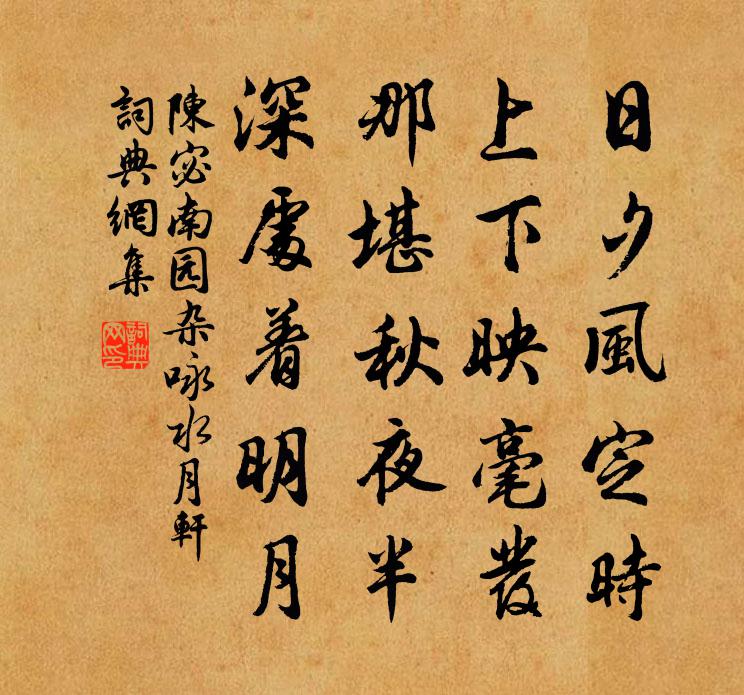 日夕風定時
上下映毫發
那堪秋夜半
深處着明月
陳宓南园杂咏水月軒
詞典網集
詞典網印